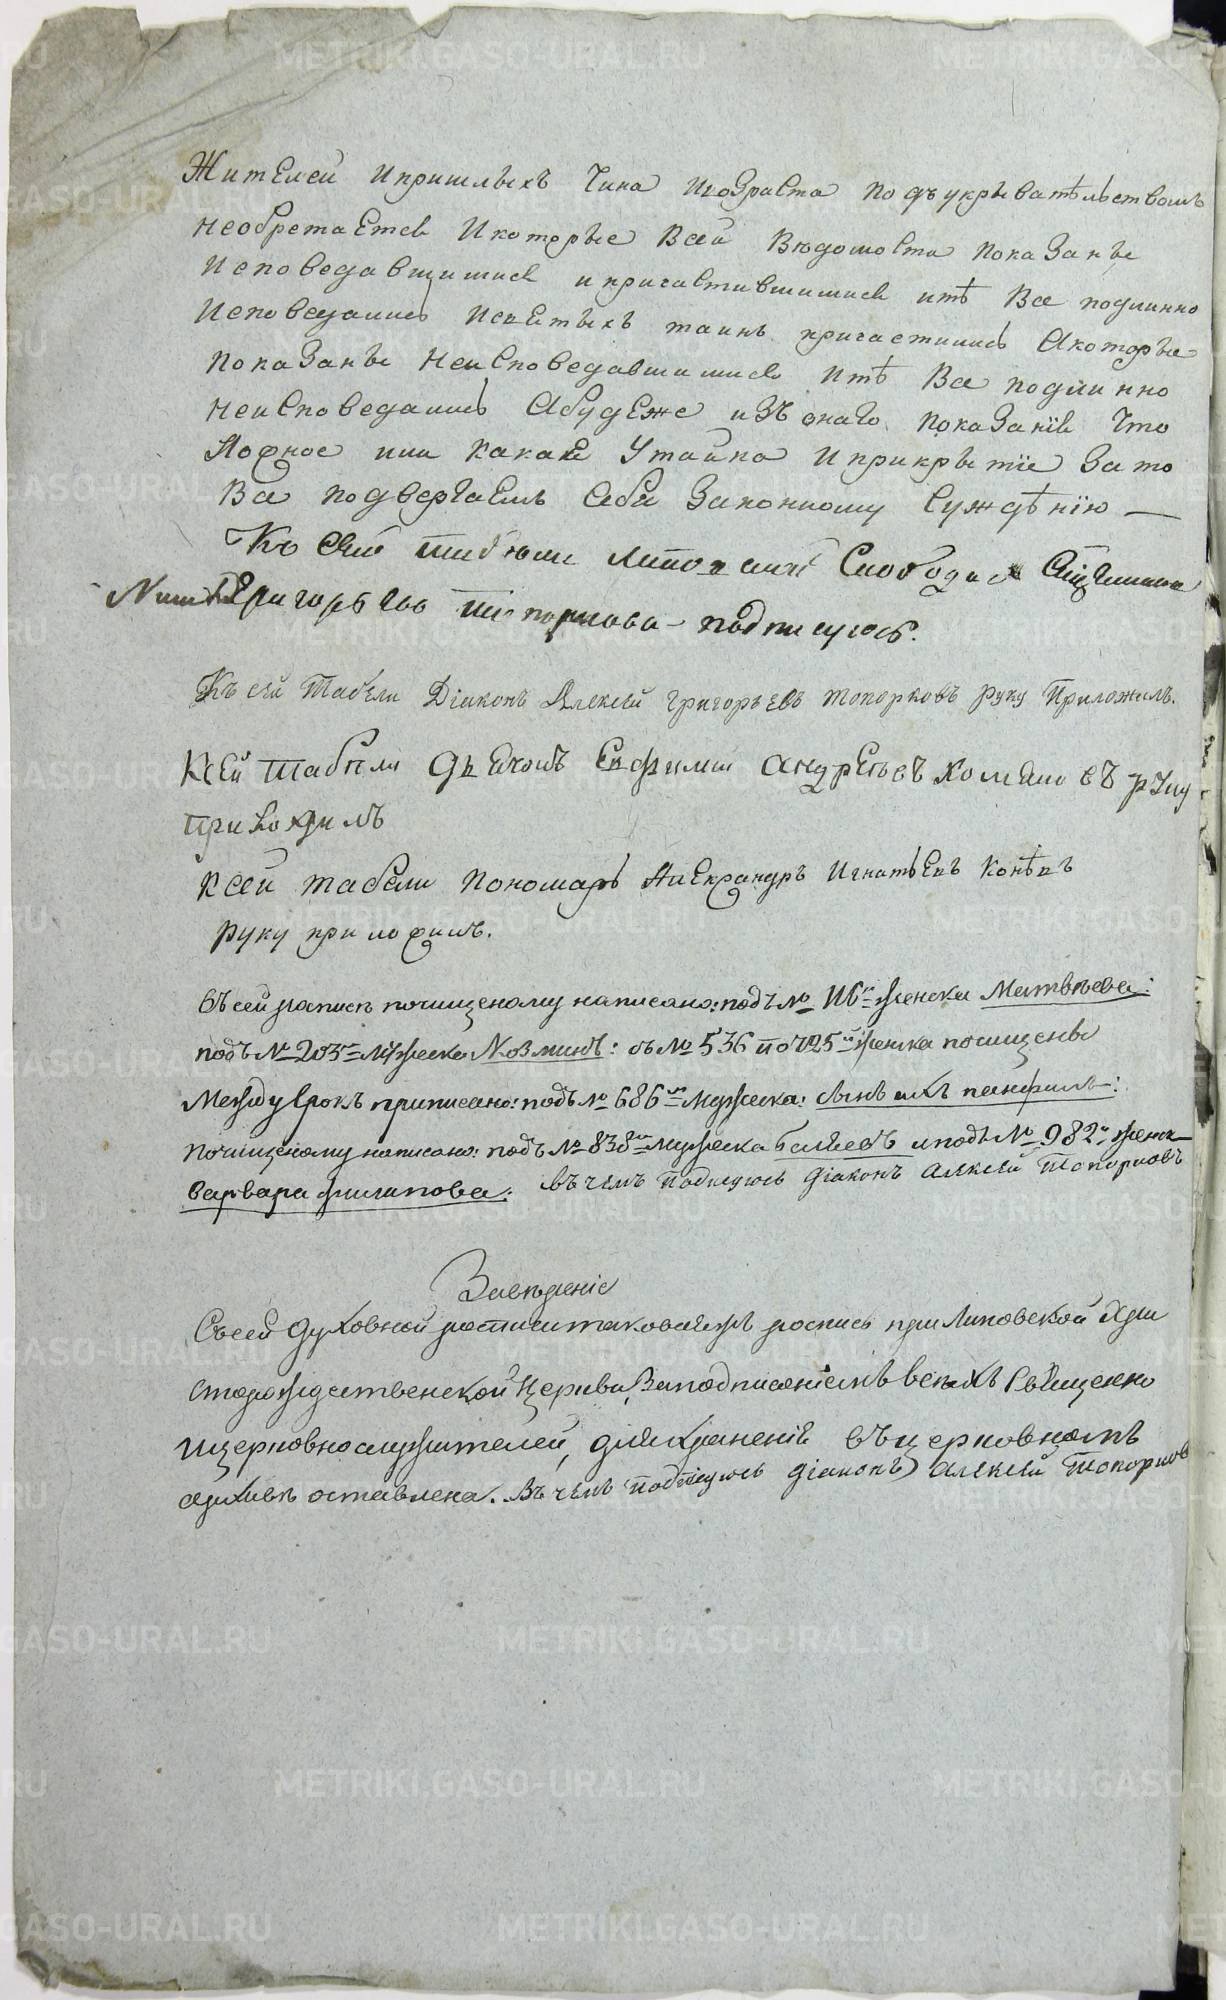 Жителей и пришлыхъ чина ивозраста подъукрывателствомъ
необретается Икоторые Всей Ведомости показаны
Исповедавшимися ипричастившимися итѣ Все подлинно
Исповедались Исвѣтыхъ таинъ причастились Акоторые
показаны Неисповедавшимися итѣ Все подлинно
неисповедались Абудеже изъ онаго показанїя что
Ложное или какая Утайка Иприкрытїе зато
Все подвергаемъ себя Законному Сужденїю —
Къ сей Липовской Слободы
Григорьевъ подписуюсь.
Къ сей Табели Дїаконъ Алексей Григорьевъ Топорковъ руку Приложилъ.
Ксей табели дьячокъ Ефимъ Андреевъ руку
приложилъ
Ксей табели Пономарь Александръ Игнатьевъ Коневъ
руку приложилъ.
Въсей росписѣ почищеному написано: подъ № 116 женска Матвѣева:
подъ № 203 мужеска Козминъ: съ № 536 по 725 женска почищены
Между срокъ приписано: подъ № 686 мужеска: сынъ ихъ панфилъ:
почищеному написано: подъ № 838 мужеска Беляевъ иподъ № 982 женск
варвара филипова: въ чемъ Подписуюсь дїаконъ Алексей Топорковъ
Съсей духовной росписи таковаяжъ роспись при Липовской Хри
сторождественской Церкви, Заподписанїемъ всехъ Священно
ицерковнослужителей, дляхраненїя въцерковномъ
архивѣ оставлена. Въ чемъ подписуюсь дїаконъ Алексей Топорков
METRIKI.GASO-URAL.RU